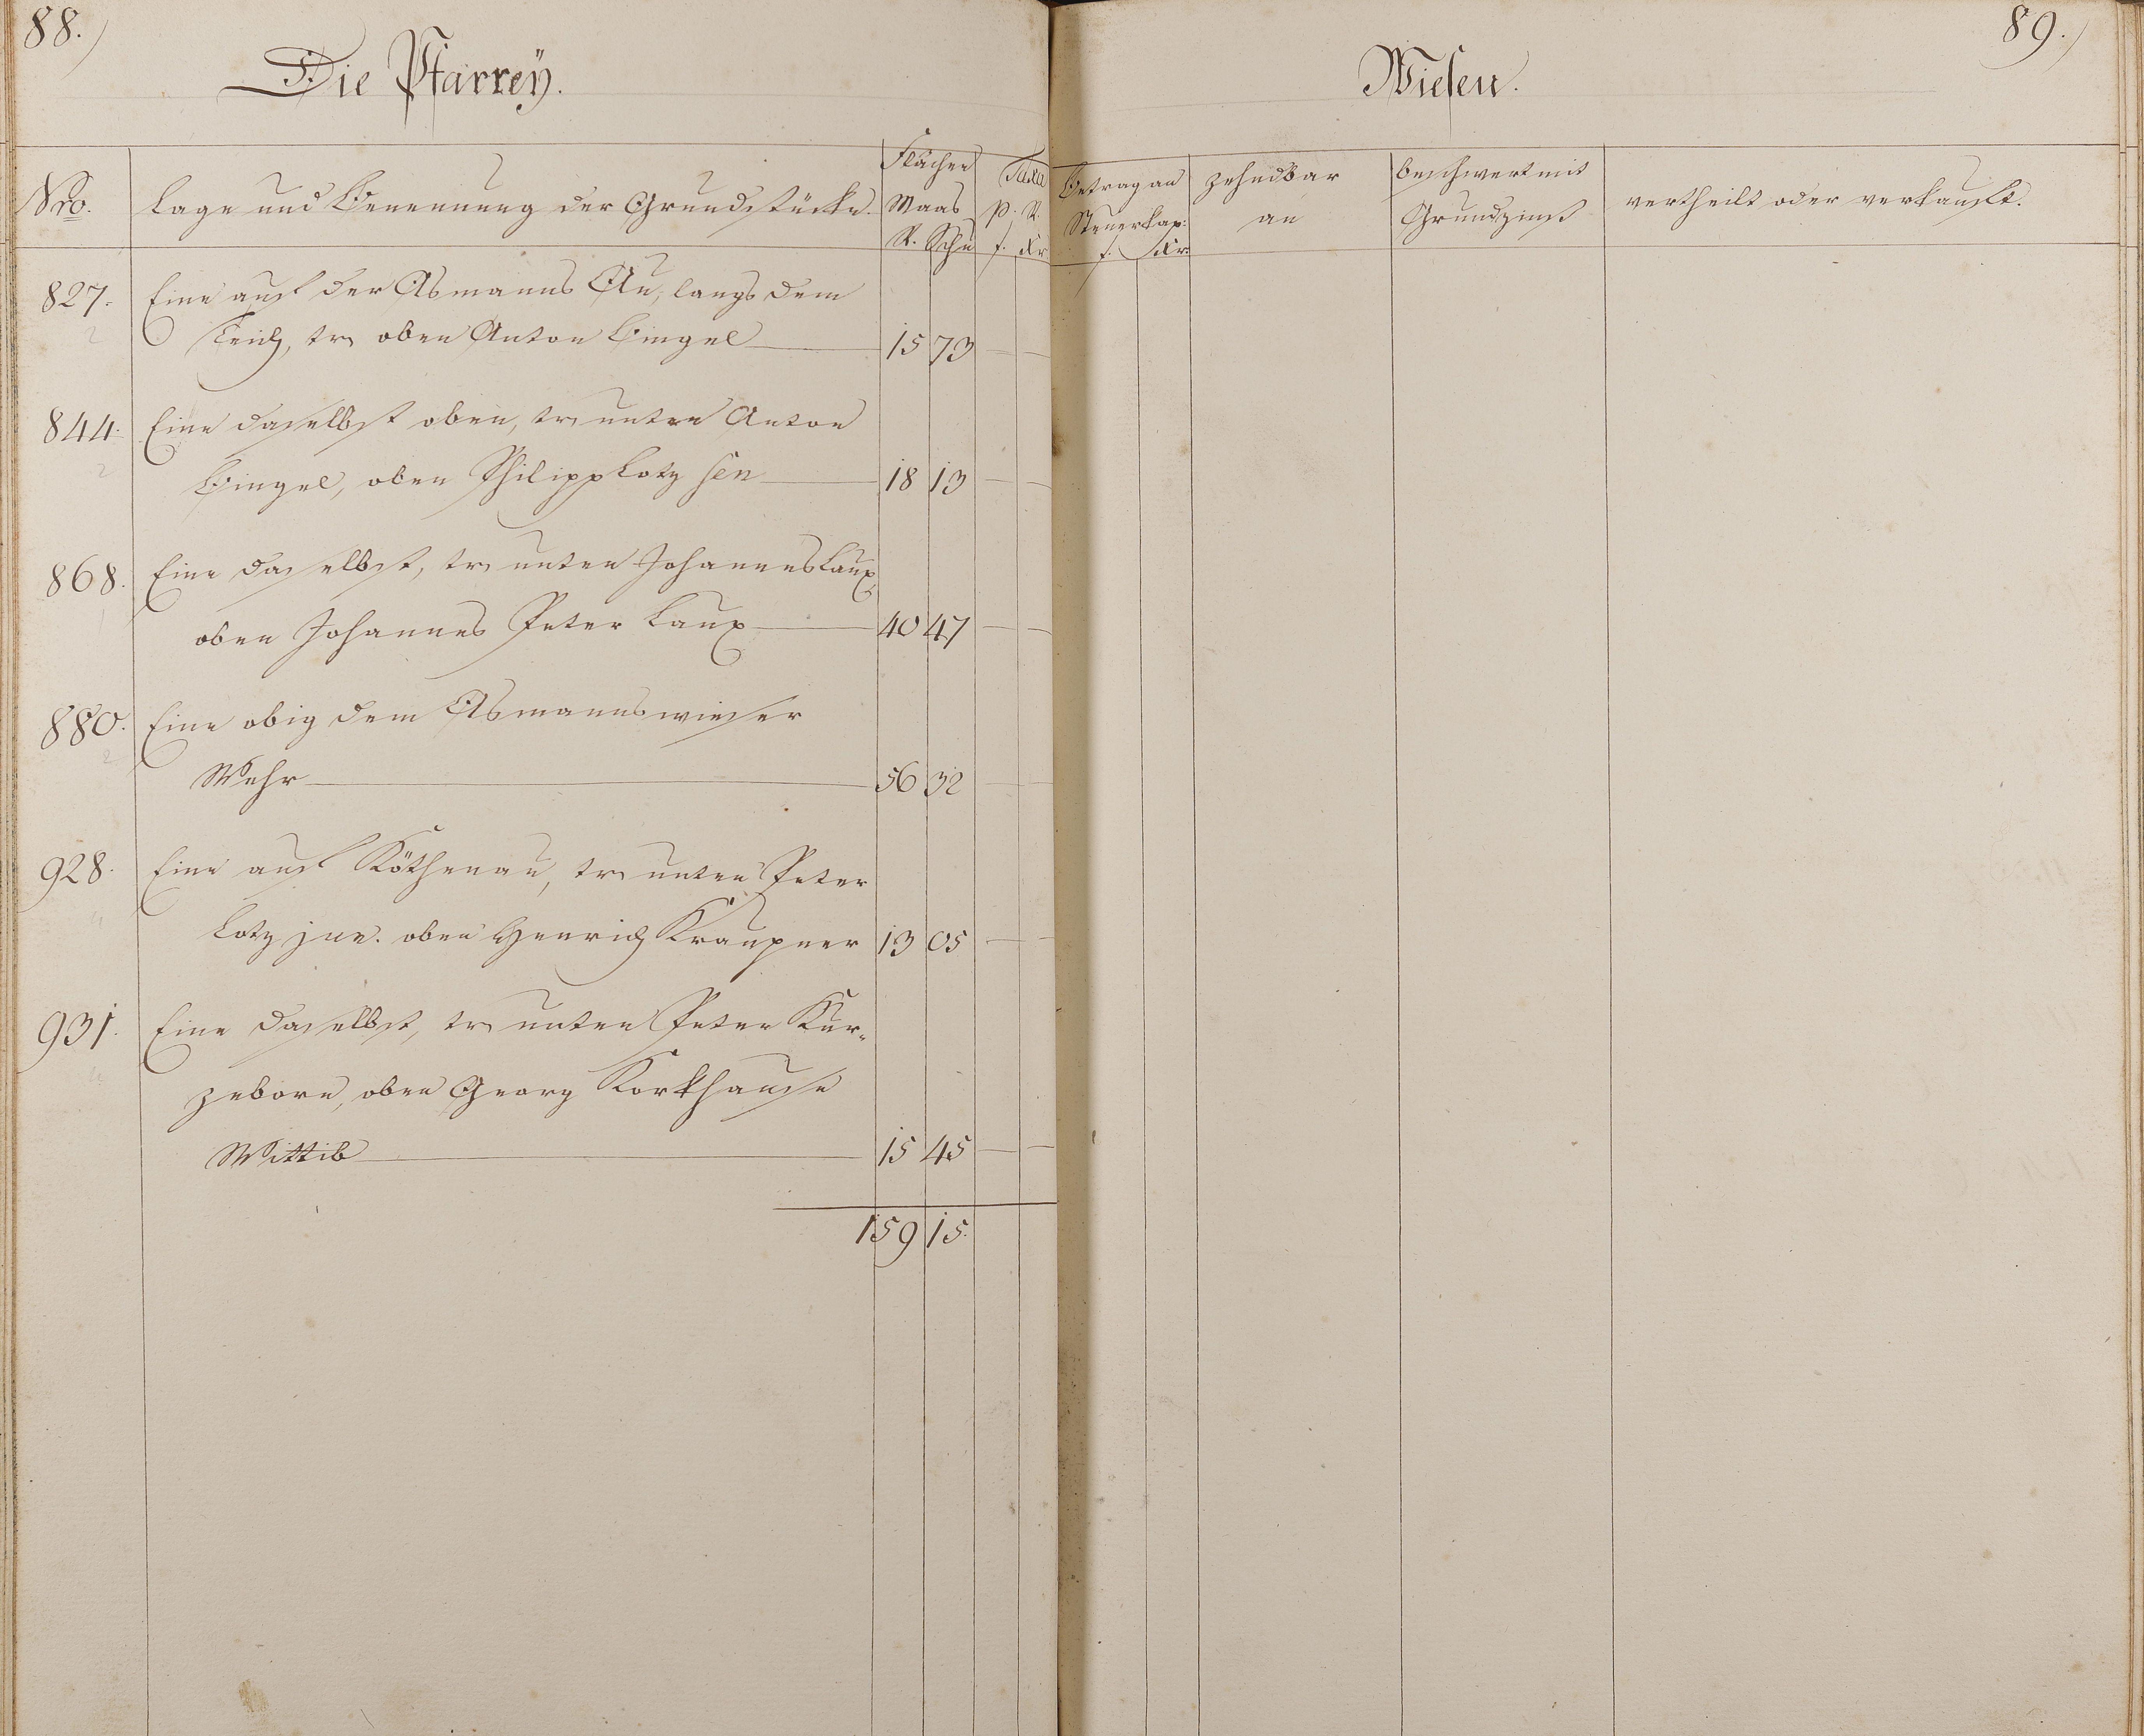 88.)
Die Pfarrey.
Nro.
Lage und Benennung der Grundstücke.
Flächen
Maas
R. Schu
Taxa
p. R.
f. Xr.
827. Eine auf der Asmanns Au, langs dem
Teich, tr. oben Anton Bingel 15 73
844. Eine daselbst oben, tr. unten Anton
Bingel, oben Philipp Lotz sen 18 13
868. Eine daselbst, tr. unten Johannes Laux,
oben Johannes Peter Laux 40 47
880. Eine obig dem Asmannswieser
Wehr 56 32
928. Eine auf Köthenau, tr. unten Peter
Lotz jun. oben Henrich Kraupner 13 05
931. Eine daselbst, tr. unten Peter Kur-
zeborn, oben Georg Korkhause
Wittib 15 45
159 15.
89.)
Wiesen.
Betrag an
Steuerkap:
f. Xr.
zehndbar
an
beschwert mit
Grundzinß
vertheilt oder verkauft.